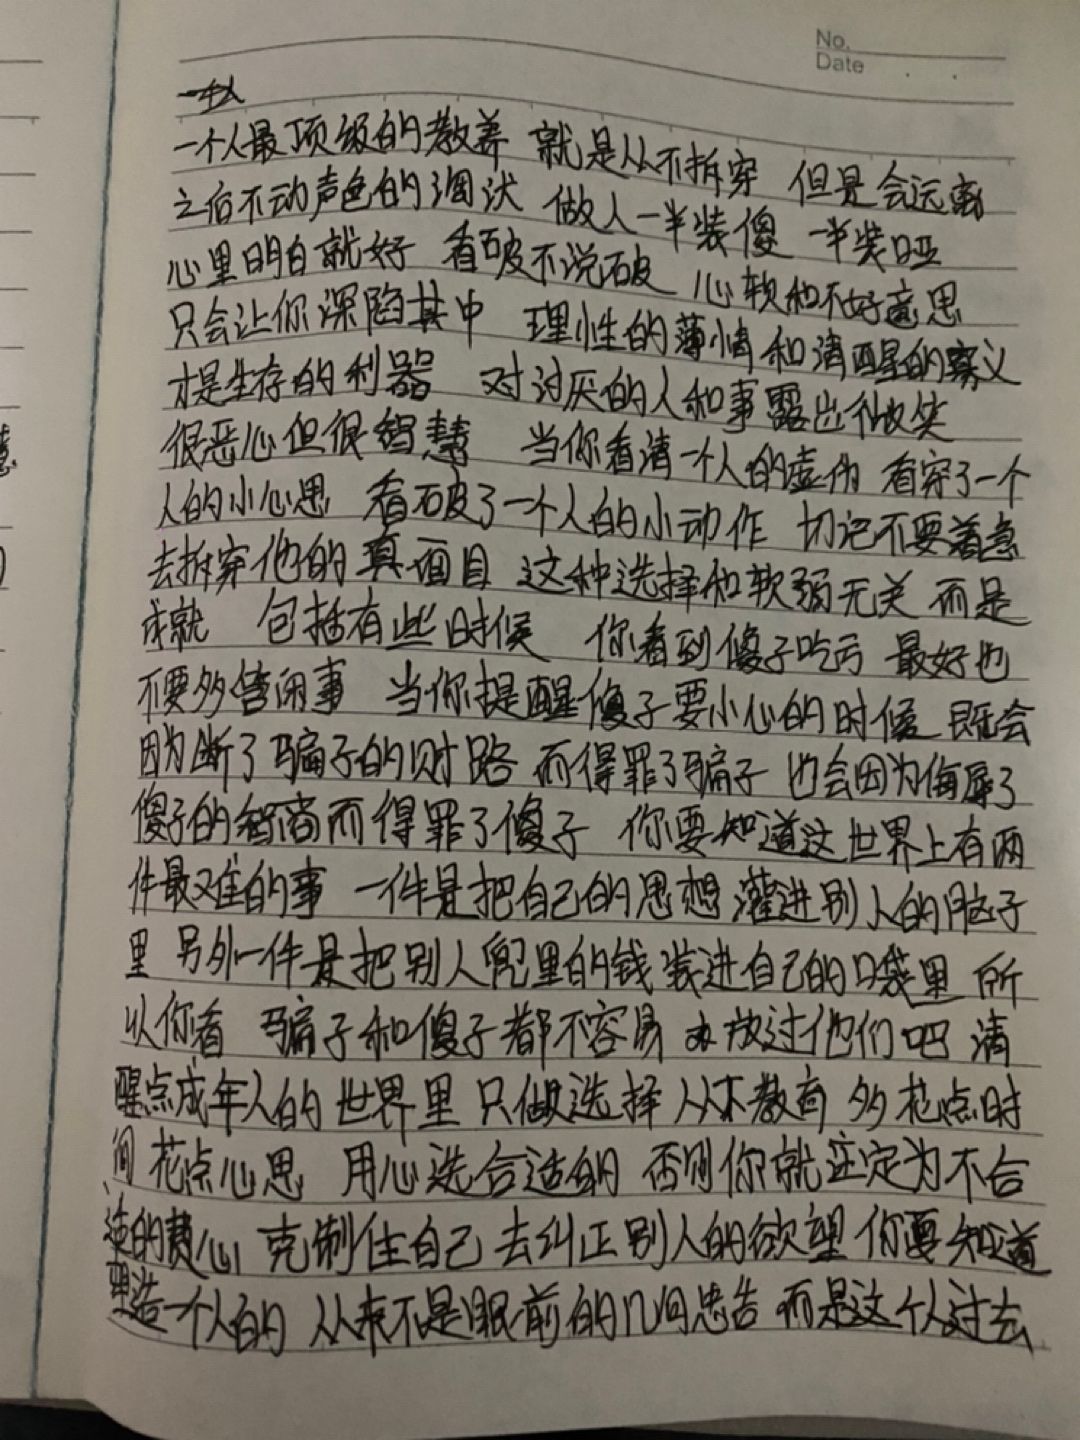 No.
Date
一个人最顶级的教养 就是从不拆穿 但是会远离
之后不动声色的调伏 做人一半装傻 一半装哑
心里明白就好 看破不说破 心软和不好意思
只会让你深陷其中 理性的薄情和清醒的寡义
才是生存的利器 对讨厌的人和事露出微笑
很恶心但很智慧 当你看清一个人的虚伪 看穿了一个
人的小心思 看破了一个人的小动作 切记不要着急
去拆穿他的真面目 这种选择和软弱无关 而是
成就 包括有些时候 你看到傻子吃亏 最好也
不要多管闲事 当你提醒傻子要小心的时候 既会
因为断了骗子的财路 而得罪了骗子 也会因为侮辱了
傻子的智商而得罪了傻子 你要知道这世界上有两
件最难的事 一件是把自己的思想灌进别人的脑子
里 另外一件是把别人兜里的钱装进自己的口袋里 所
以你看 骗子和傻子都不容易 放过他们吧 清
醒点成年人的世界里 只做选择 从不教育 多花点时
间 花点心思 用心选合适的 否则你就注定为不合
适的费心 克制住自己 去纠正别人的欲望 你要知道
塑造一个人的 从来不是眼前的几句忠告 而是这个人过去